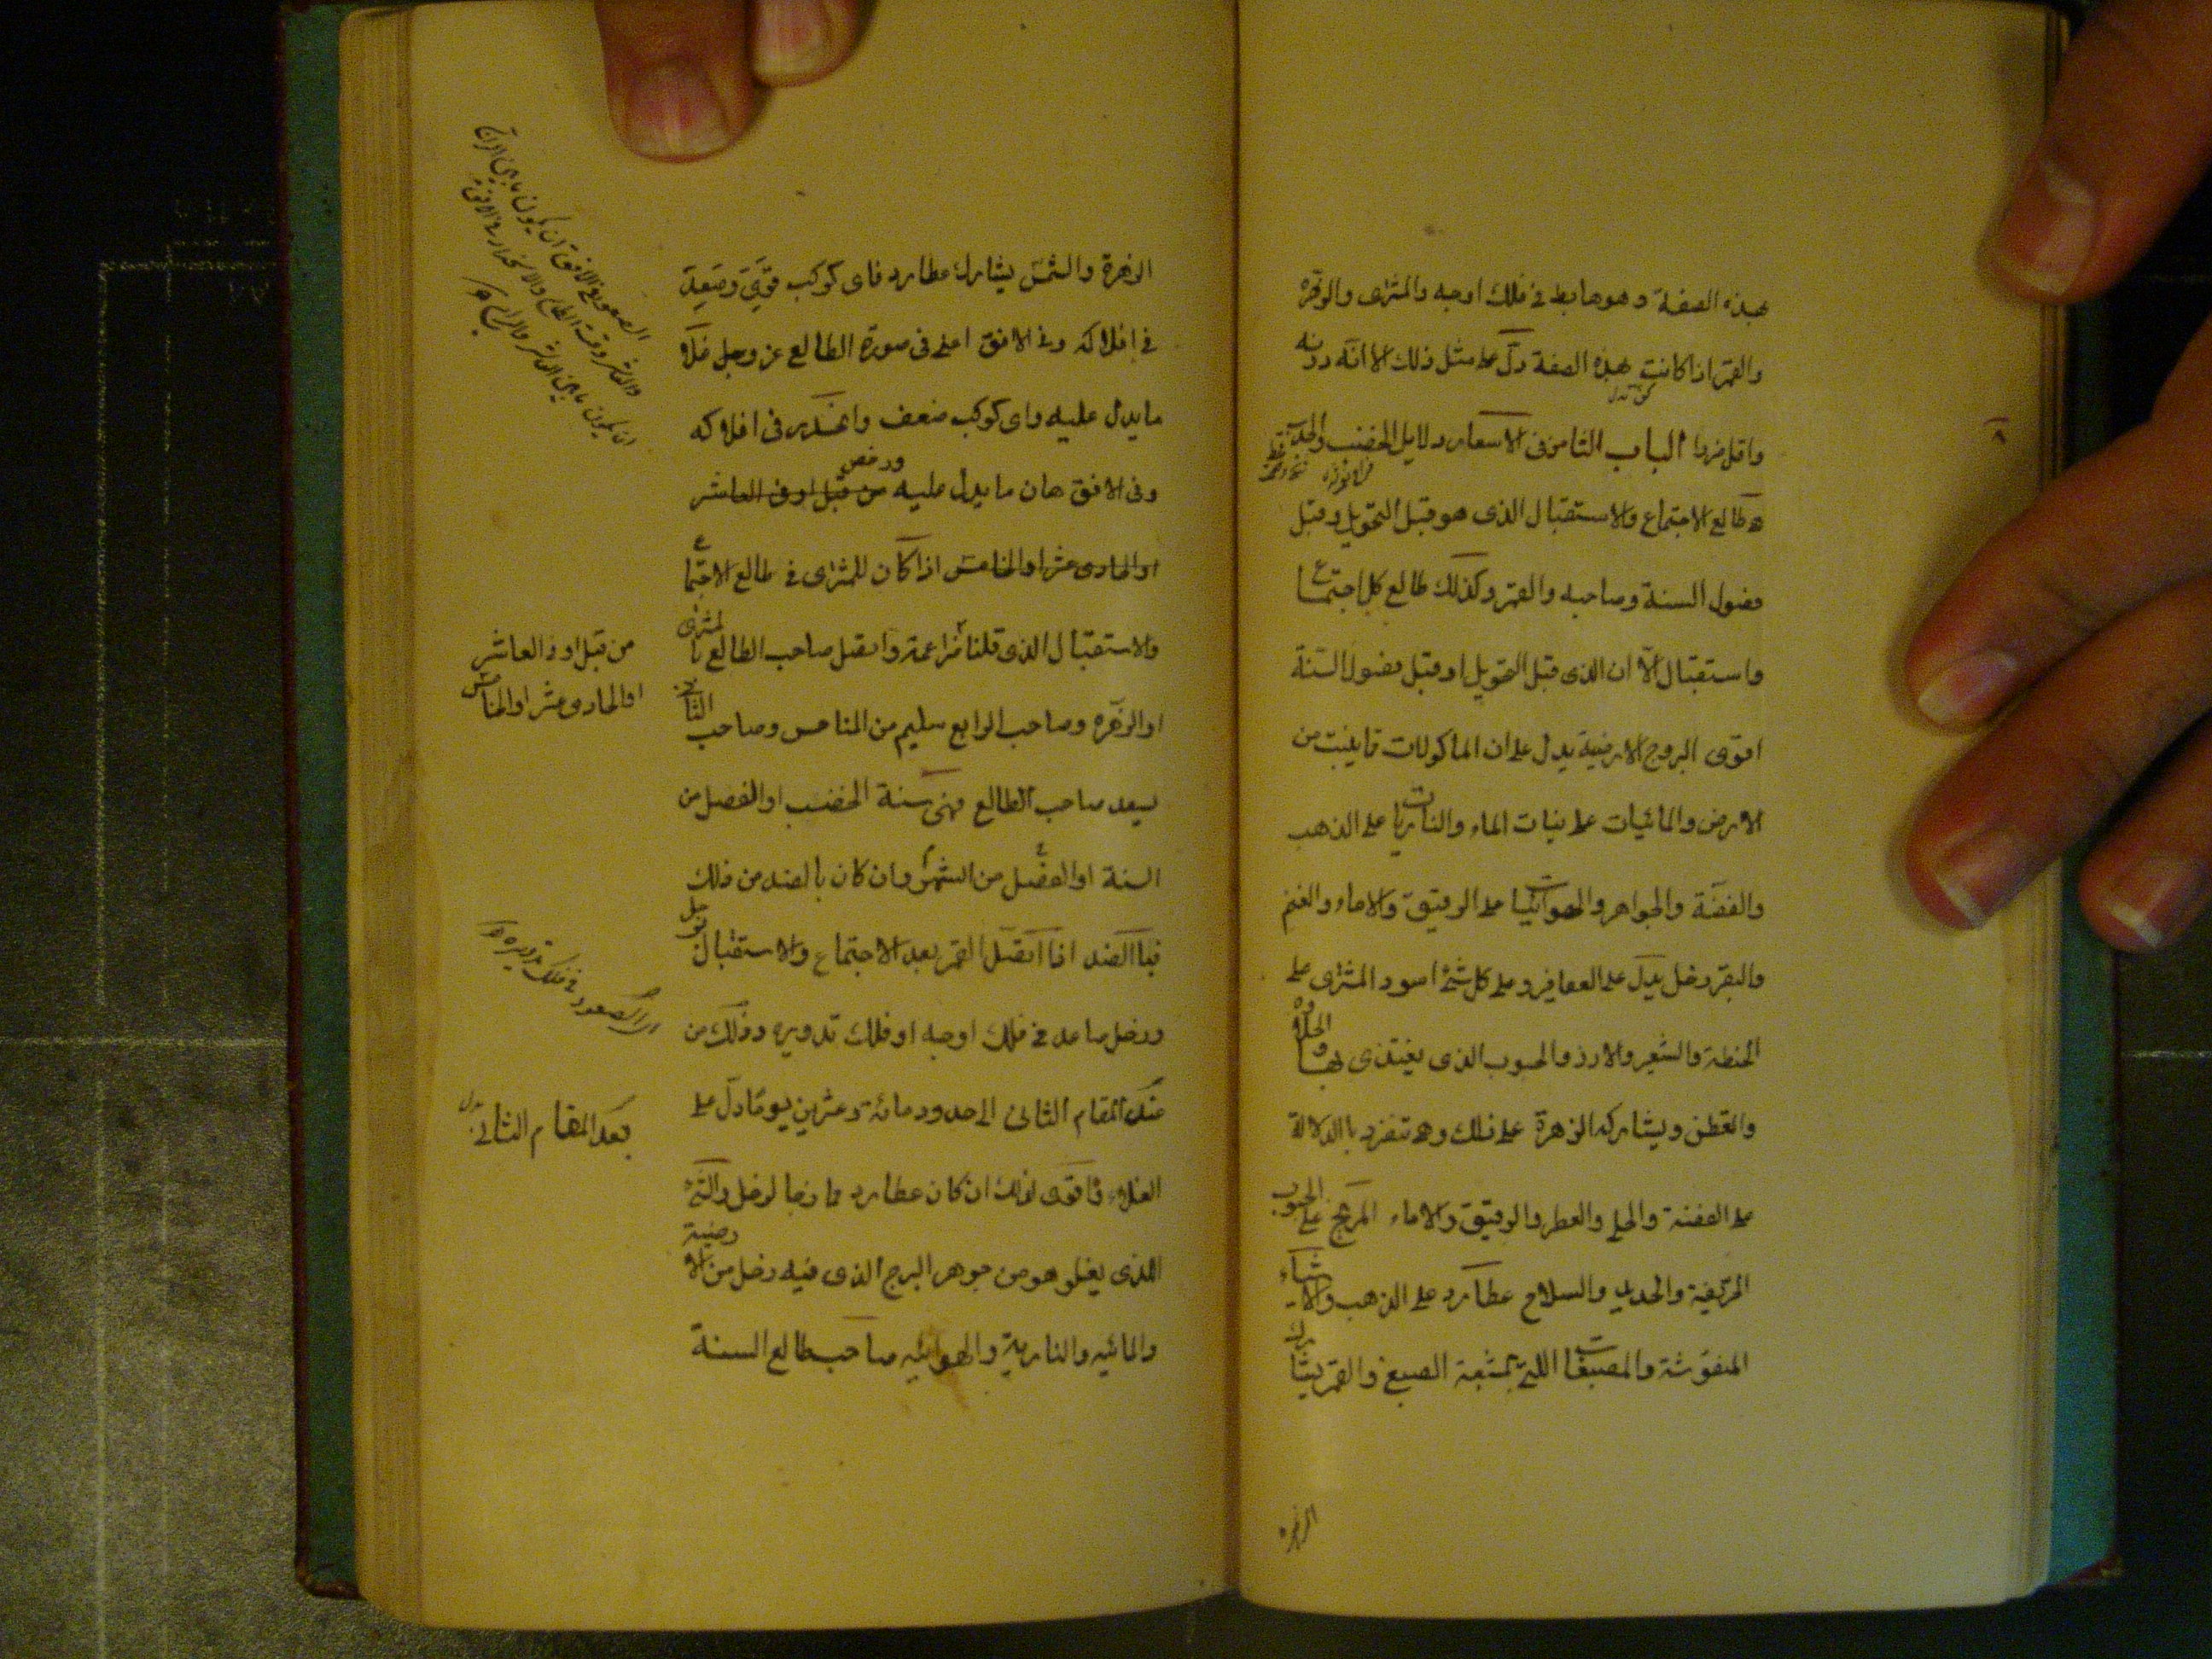 بهذه الصفة وهو هابط في فلك اوجه والمشترى والزهره
والقمر اذا كانت بهذه الصفة دلّ على مثل ذلك الا انّه دونه
واقل ضررا الباب الثامن فى الاسعار ودلايل الخصب والجدب
٨
طالع الاجتماع والاستقبال الذى هو قبل التحويل وقبل
فصول السنة وصاحبه والقمر وكذلك طالع كل اجتماع
واستقبال الّا ان الذى قبل التحويل او قبل فصول السّنة
اقوى البروج الارضية يدل على ان الماكولات مما ينبت من
الارض والمائيات على نبات الماء والناريات على الذهب
والفضّة والجواهر والهوائيات على الرقيق والاماء والغنم
والبقر زحل يدلّ على العقاقير وعلى كل شئ اسود المشترى على
الحنطة والشعير والارز والحبوب الذى يغتذى بها والحلاوه
والقطن ويشاركه الزهرة على ذلك وهى تنفرد باالدلالة
على الفضة والحلى والعطر والرقيق والاماء المريخ على الحبوب
الحريفية والحديد والسلاح عطارد على الذهب والاشياء
المنقوشة والمصبغات اللتى بمشبعة الصبغ والقمر يشارك
الزهره
الزهرة والشمس يشارك عطارد فاى كوكب قوّى وصعد
فى افلاكه وفى الافق اعلى فى صورة الطالع عز وجل غلاء
ما يدل عليه واى كوكب ضعف وانحدر فى افلاكه
وفى الافق هان ما يدل عليه ورخص من قبل او فى العاشر
او الحادى عشر او الخامس اذا كان للمشترى فى طالع الاجتماع
والاستقبال الذى قلنا مزاعمة واتصل صاحب الطالع بالمشترى
او الزهره وصاحب الرابع سليم من المناحس وصاحب الثانى
يسعد صاحب الطالع فهى سنة الخصب او الفصل من
السنة او الفصل من الشهر وان كان بالضد من ذلك
فباالضد اذا اتصل القمر بعد الاجتماع والاستقبال بزحل
وزحل صاعد فى فلك اوجه او فلك تدويره وذلك من
عند المقام الثانى الى حدود مائة وعشرين يوما دلّ على
الغلاء واقوى لذلك ان كان عطارد ممازجا لزحل والشئ
الذى يغلو هو من جوهر البرج الذى فيه زحل من الارضية
والمائيه والنارية والهوائيه صاحب طالع السنة
من قبل او فى العاشر
او الحادى عشر او الخامس
بعد المقام الثانى بدل